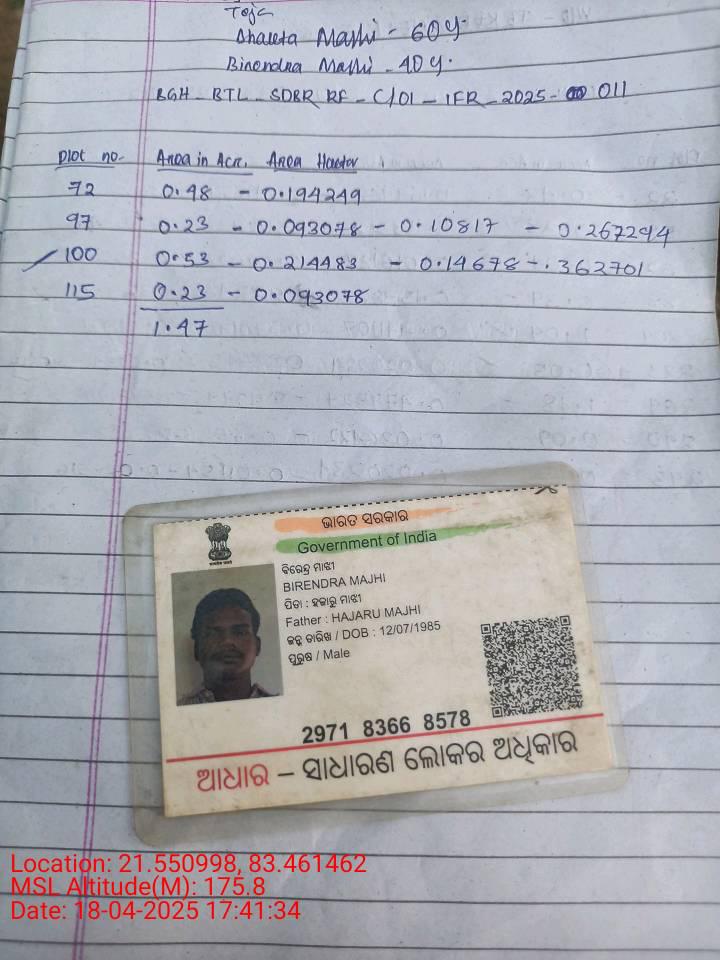 Dhaneta Majhi - 60y
Birendra Majhi - 40y.
BGH - BTL - SDBR RF - C/01 - IFR - 2025 - 011
Plot no. Area in Acr. Area Hactor
72 0.48 - 0.194249
97 0.23 - 0.093078 - 0.10817 - 0.267294
100 0.53 - 0.214483 - 0.14678 - .362701
115 0.23 - 0.093078
1.47
ଭାରତ ସରକାର
Government of India
ବିରେନ୍ଦ୍ର ମାଝୀ
BIRENDRA MAJHI
ପିତା : ହଜାରୁ ମାଝୀ
Father : HAJARU MAJHI
ଜନ୍ମ ତାରିଖ / DOB : 12/07/1985
ପୁରୁଷ / Male
2971 8366 8578
ଆଧାର – ସାଧାରଣ ଲୋକର ଅଧିକାର
Location: 21.550998, 83.461462
MSL Altitude(M): 175.8
Date: 18-04-2025 17:41:34